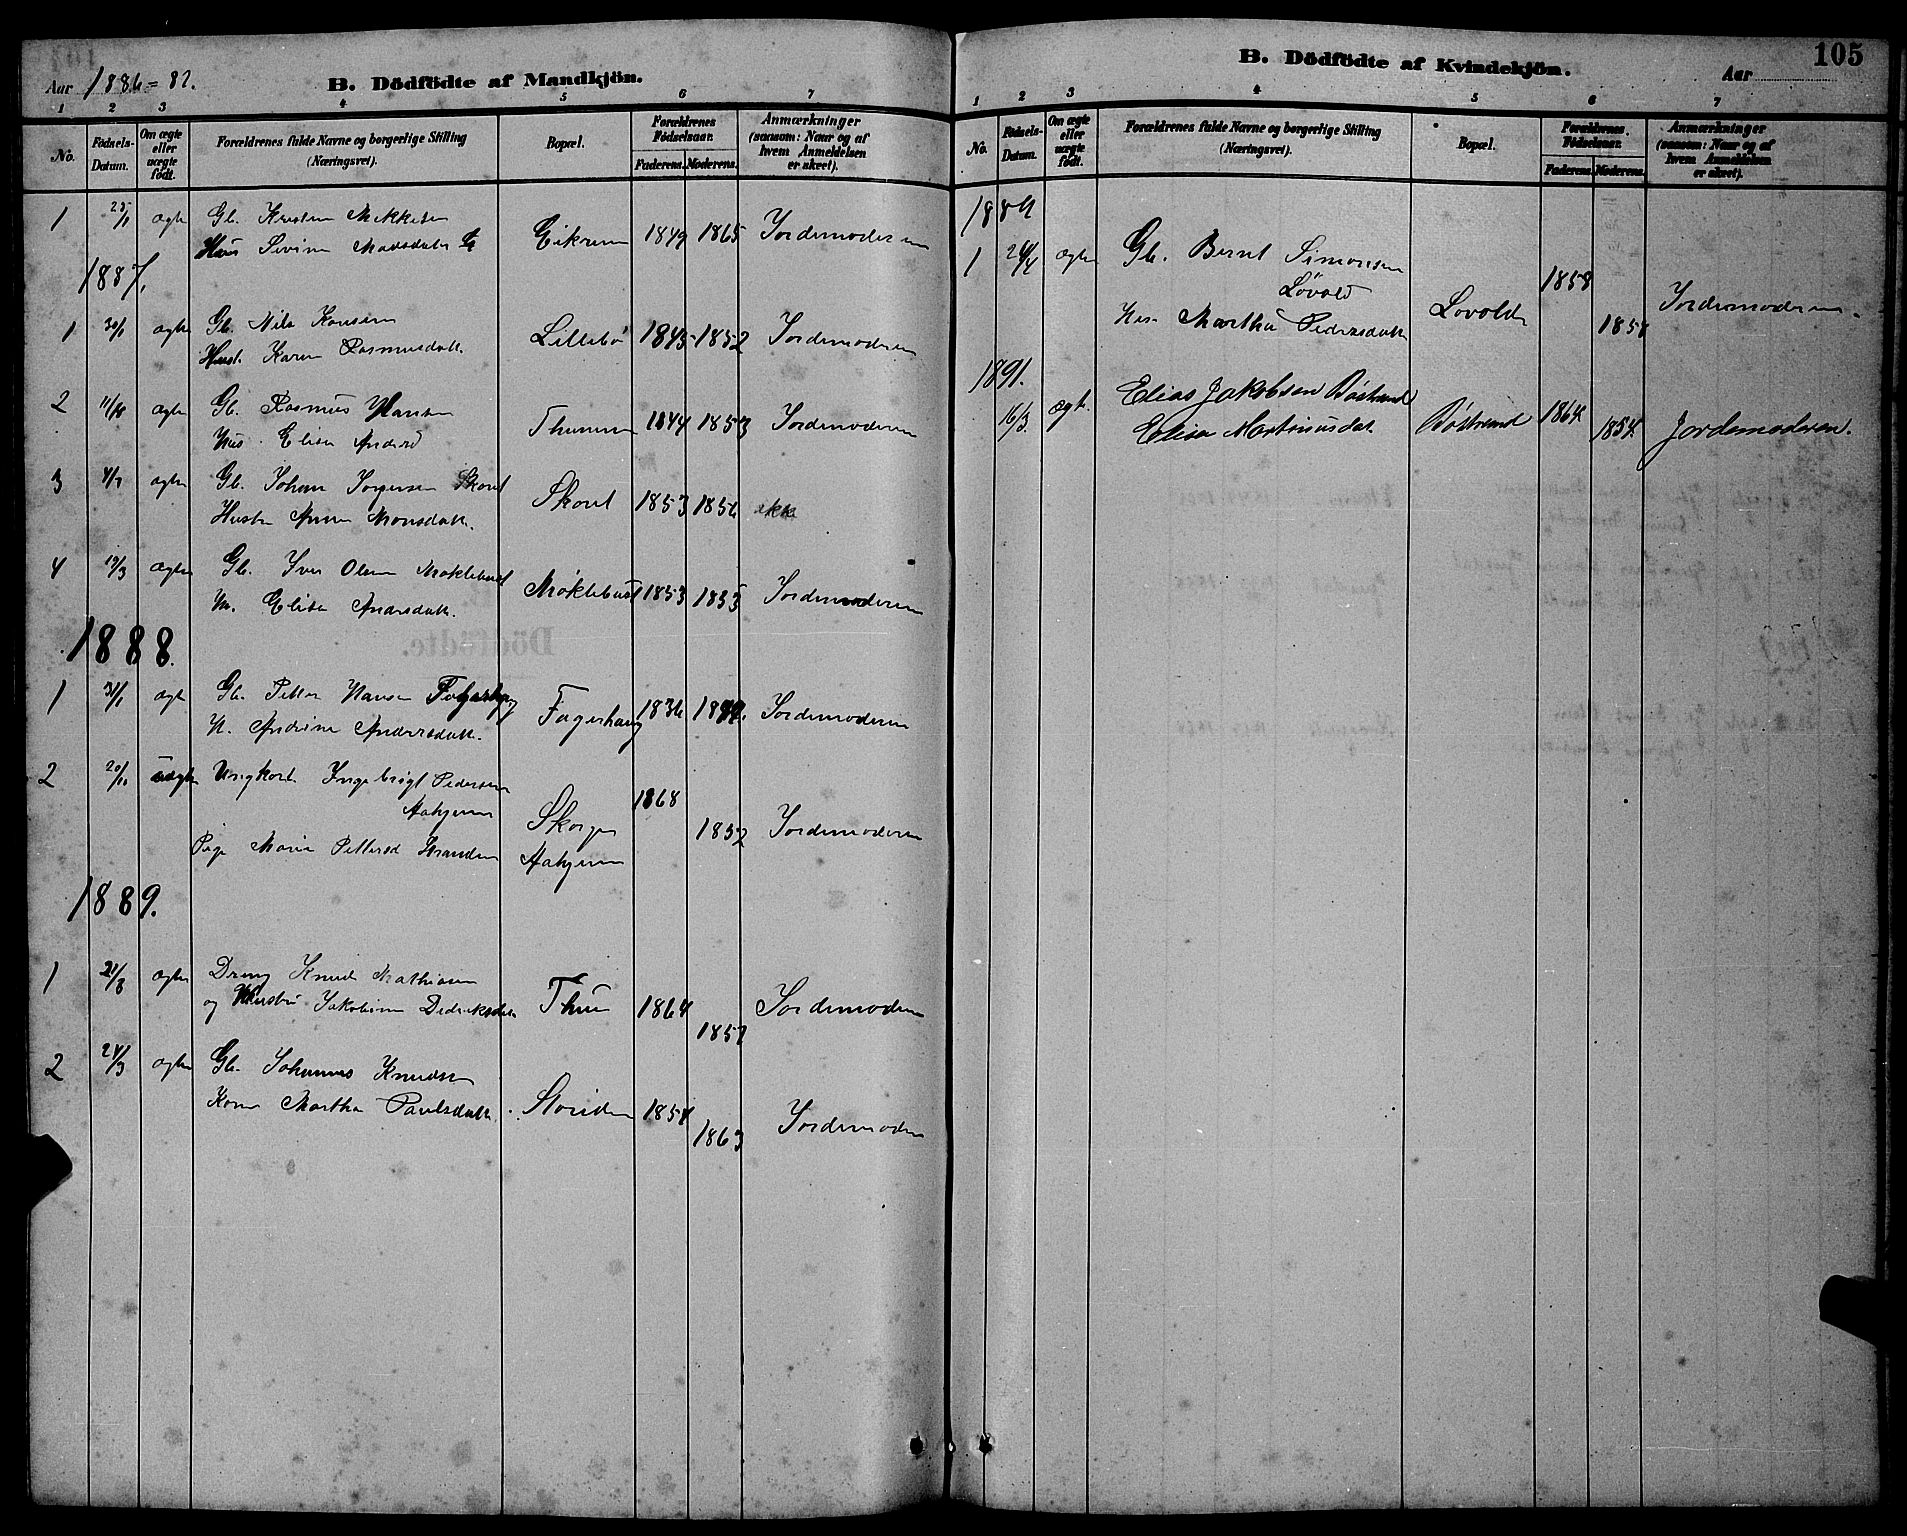 Aar 1886-87.
B. Dödfödte af Mandkjön.
1 2 3 4 5 6 7
No.
Födsels-Datum.
Om ægte eller uægte födt.
Forældrenes fulde Navne og borgerlige Stilling (Næringsvei).
Bopæl.
Forældrenes Födselsaar.
Faderens. Moderens.
Anmærkninger (saasom: Naar og af hvem Anmeldelsen er skeet).
1 ægte Gb. Kristen Mikkelsen
Hus Sivine Madsdatter Eikrem 1849 1865 Jordemoderen
1887.
1 30/1 ægte Gb. Nils
Hust. Karen Rasmusdatt. Lillebö 1843 1852 Jordemoderen
2 ægte Gb. Rasmus Hansen
Hus. Elisa Andersd 1844 1853 Jordemoderen
3 4/7 ægte Gb. Johan Jörgensen Skoret
Hustr Anne Monsdatt. Skoret 1853 1856 ikke
4 ægte Gb. Iver Olsen Möklebust
H. Elise Andersdatt. Möklebust 1853 1855 Jordemoderen
1888.
1 31/1 ægte Gb. Petter Hansen Fagerhaug
H. Andrine Andersdatt. Fagerhaug 1836 Jordemoderen
2 uægte Ungkarl Ingebrigt Pedersen
Pige Marie Pettersd Skorgen 1868 1852 Jordemoderen
1889.
1 21/8 ægte Dreng Knud Mathiasen
og Hustru Jakobine Didriksdatter Thue 1864 1857 Jordemoderen
2 24/3 ægte Gb. Johannes Knudsen
Kone Martha Paulsdatt. 1858 1863 Jordemoderen
105
B. Dödfödte af Kvindekjön.
Aar
1 2 3 4 5 6 7
No.
Födsels-Datum.
Om ægte eller uægte födt.
Forældrenes fulde Navne og borgerlige Stilling (Næringsvei).
Bopæl.
Forældrenes Födselsaar.
Faderens. Moderens.
Anmærkninger (saasom: Naar og af hvem Anmeldelsen er skeet).
1889
1 24/4 ægte Gb. Bernt Simonsen
Lövold
Martha Pedersdatt Lovold 1858 1857 Jordemoderen.
1891.
16/3. ægt. Elias Jakobsen Böstrand
Elisa Martinusdat. Böstrand 1864. 1854. Jordemoderen.